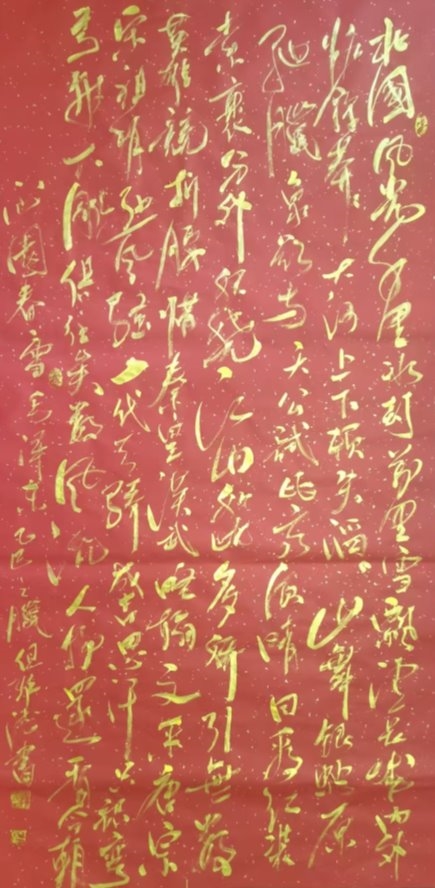 北國風光千里冰封萬里雪飄望長城內外
惟餘莽莽大河上下頓失滔滔山舞銀蛇原
馳臘象欲與天公試比高須晴日看紅裝
素裹分外妖嬈江山如此多嬌引無數
英雄競折腰惜秦皇漢武略輸文采唐宗
宋祖稍遜風騷一代天驕成吉思汗只識彎
弓射大雕俱往矣數風流人物還看今朝
沁園春雪毛澤东乙巳之臘書